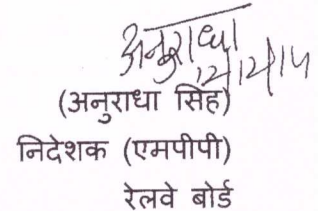 अनुराधा
(अनुराधा सिंह)
निदेशक (एमपीपी)
रेलवे बोर्ड